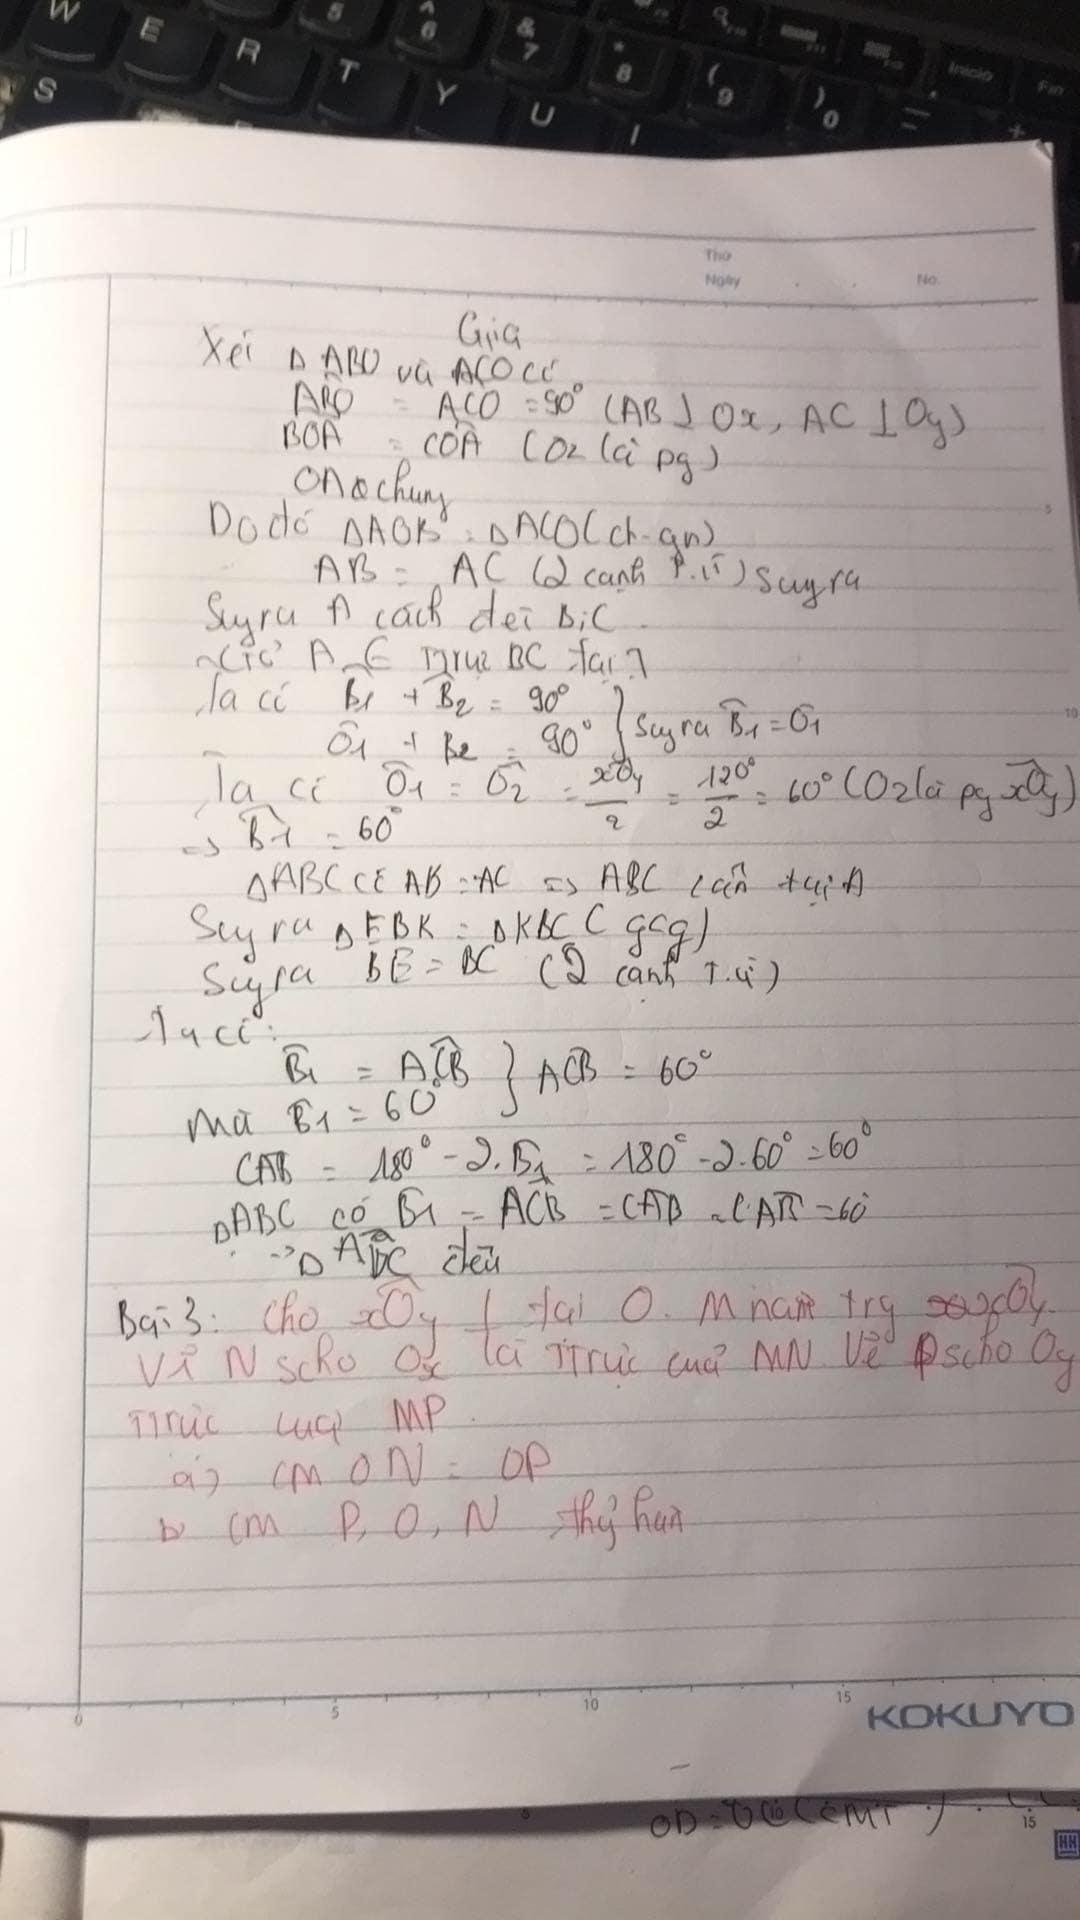 W E R T Y U I
5 ^ 6 & 7 * 8 ( 9 ) 0 = +
S
Inicio Fin
Thứ
Ngày No.
Giả
Xét Δ ABO và ACO có
ABO = ACO = 90° (AB ⊥ Ox, AC ⊥ Oy)
BOA = COA (Oz là pg)
OA chung
Do đó ΔAOB = ΔACO (ch-gn)
AB = AC (2 cạnh t.ư) Suy ra
Suy ra A cách đều B, C
A ∈ Ttrực BC tại
Ta có B̂1 + B̂2 = 90°
Ô1 + B2 = 90° } Suy ra B̂1 = Ô1
Ta có Ô1 = Ô2 = xOy/2 = 120°/2 = 60° (Oz là pg xOy)
=> B̂1 = 60°
ΔABC có AB = AC => ABC cân tại A
Suy ra Δ EBK = ΔKBC (gcg)
Suy ra BE = BC (2 cạnh T.ư)
Ta có:
B̂1 = ACB } ACB = 60°
Mà B̂1 = 60°
CAB = 180° - 2.B̂1 = 180° - 2.60° = 60°
ΔABC có B̂1 = ACB = CAB = CAB = 60
-> Δ ABC đều
Bài 3: Cho xOy ⊥ tại O. M nằm trg xOy.
Vẽ N scho Ox là Ttrực của MN. Vẽ P scho Oy
Ttrực của MP
a) CM ON = OP
b CM P, O, N thg hàng
0 5 10 15
KOKUYO
15